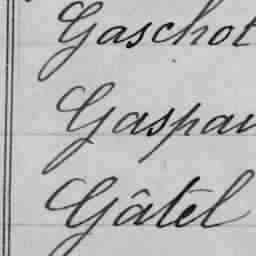 Gaschot
Gaspar
Gâtel